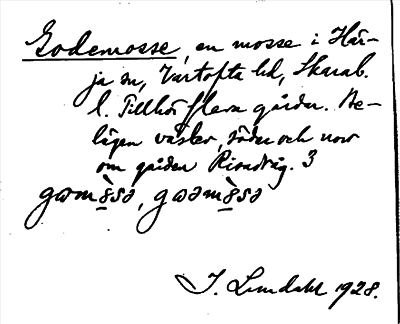 Godemosse, en mosse i Här-
ja sn, Vartofta hd, Skarab.
l. Tillhör flera gårdar. Be-
lägen väster, söder och norr
om gården 3
J. Lindahl 1928.